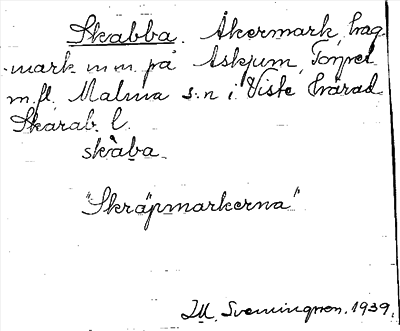 Skabba. Åkermark, hag-
mark m.m. på Askrum, Torpet
m.fl. Malma s:n i Viste härad
Skarab. l.
skàba.
"Skräpmarkerna"
Svenningson. 1939.